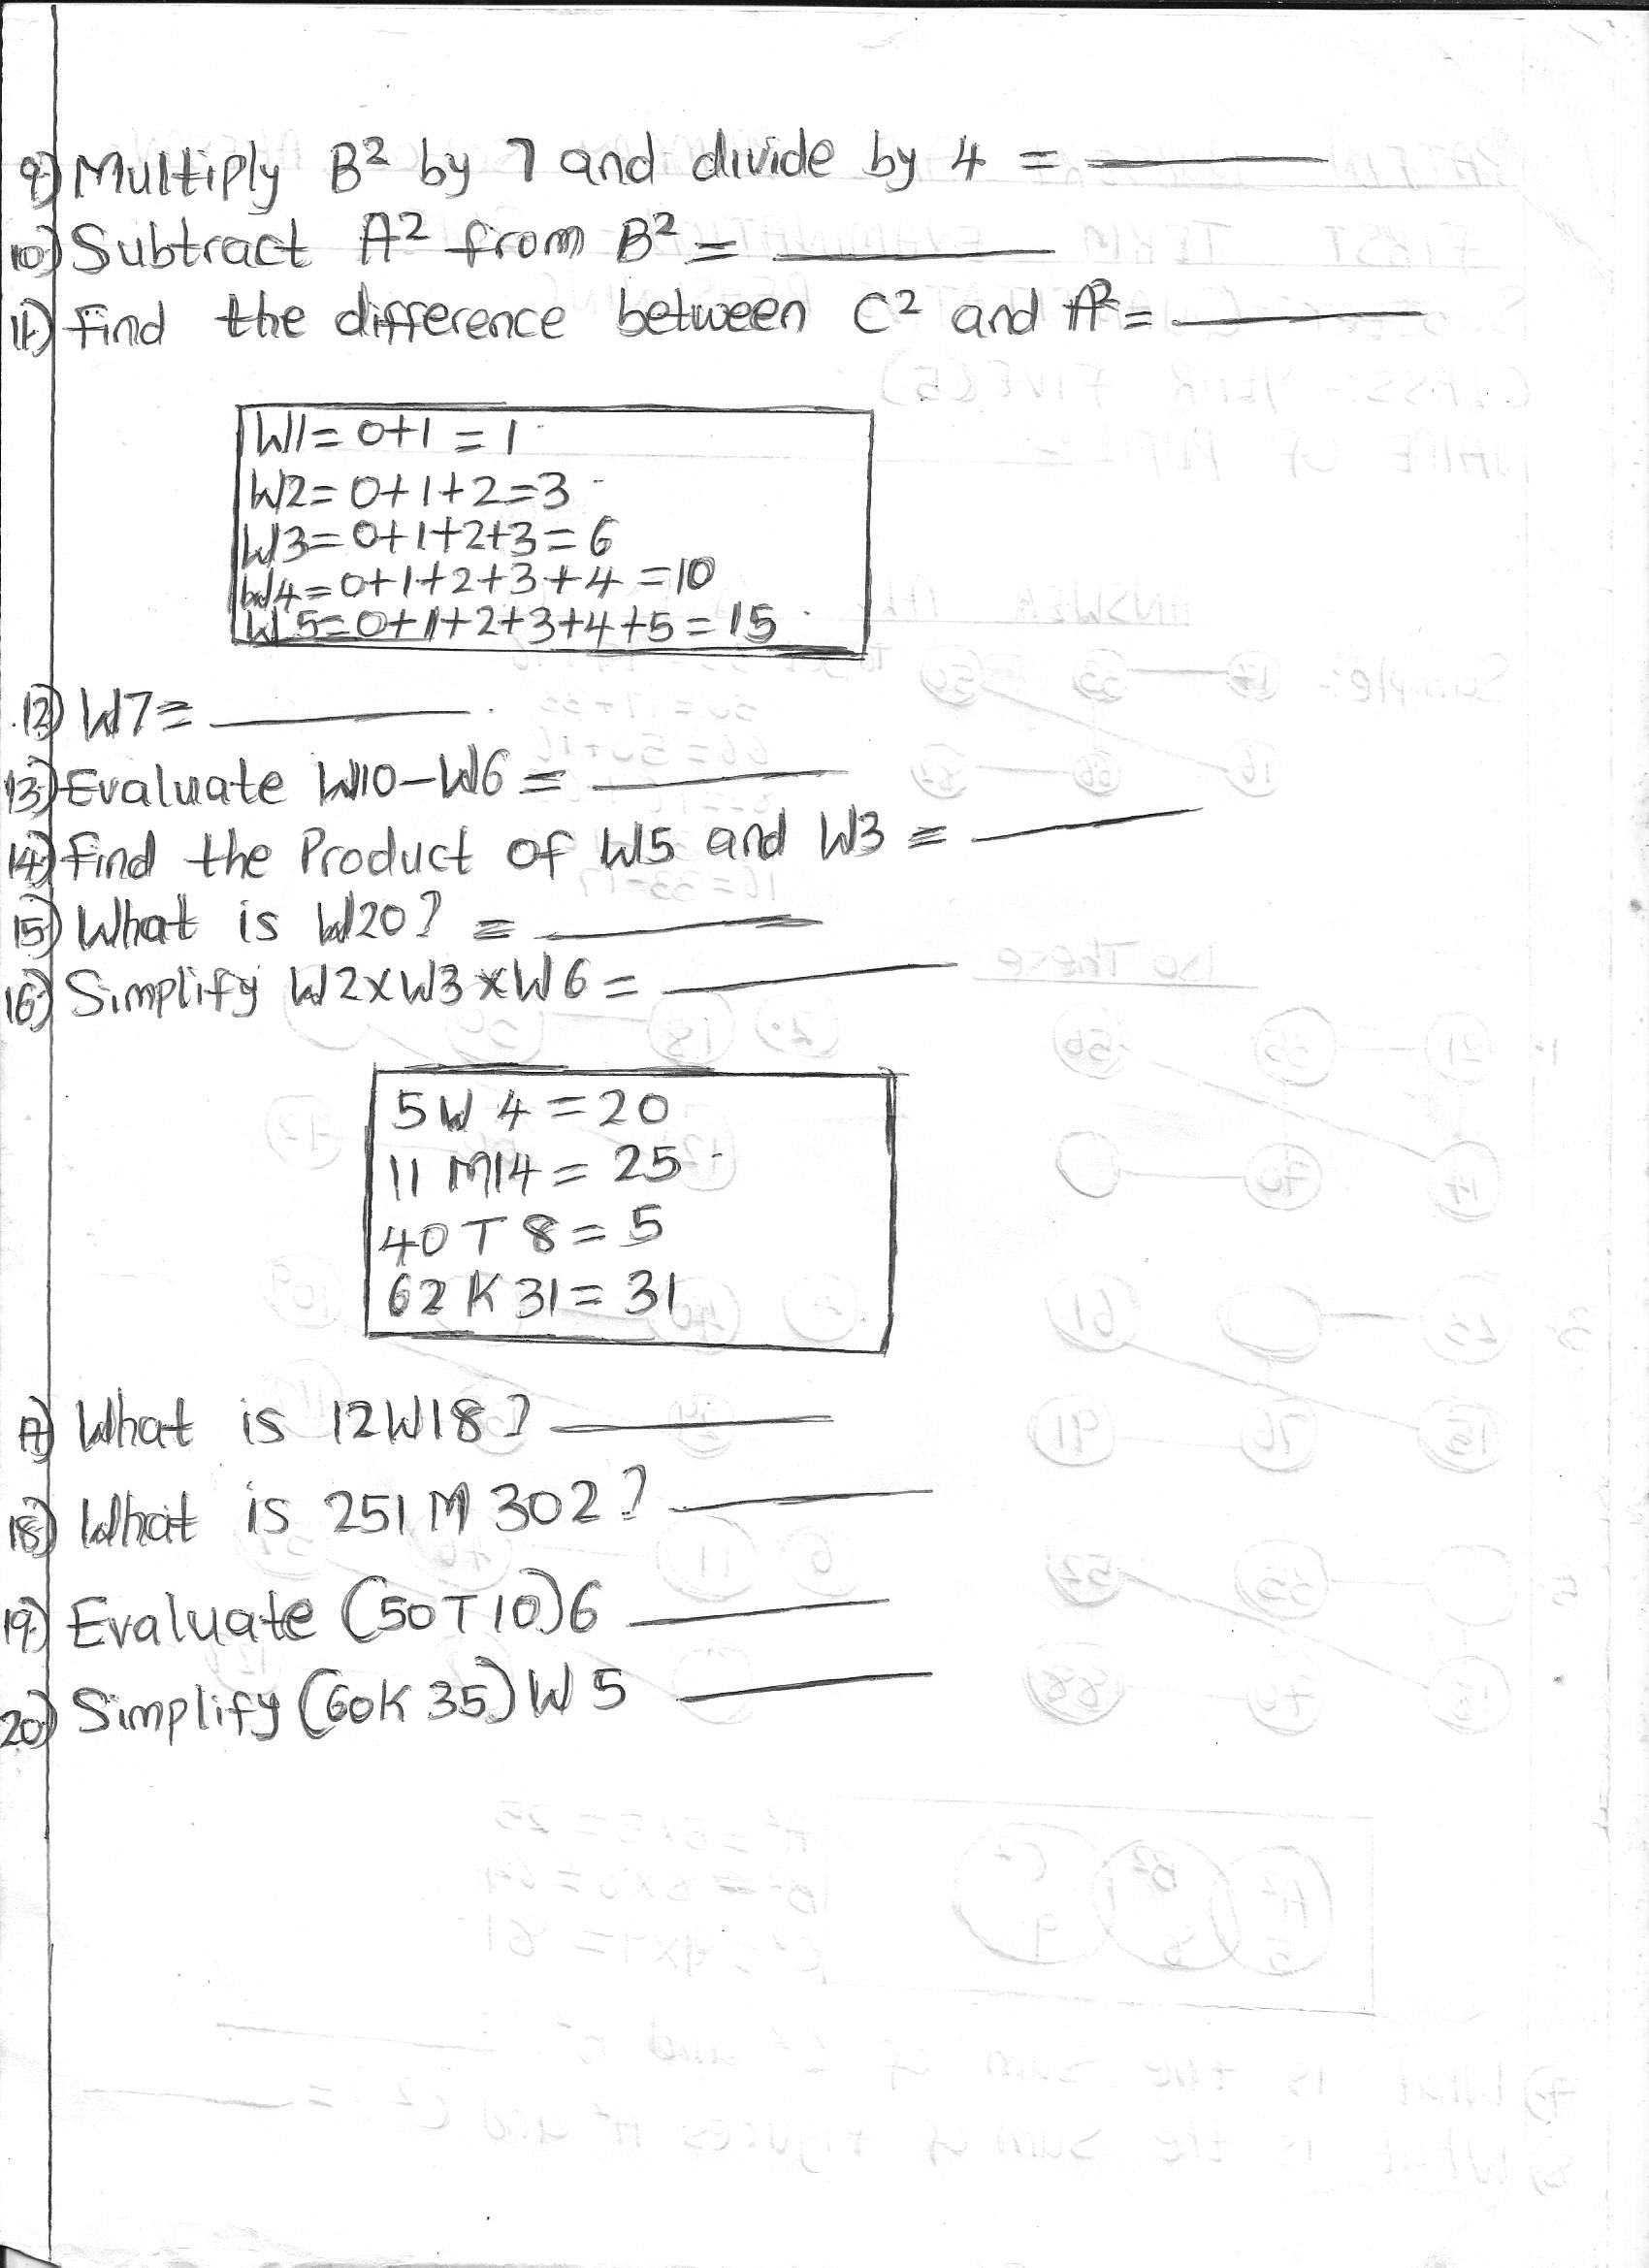 9) Multiply B² by 7 and divide by 4 = ______
10) Subtract A² from B² = ______
11) Find the difference between C² and A² = ______
W1 = 0+1 = 1
W2 = 0+1+2 = 3
W3 = 0+1+2+3 = 6
W4 = 0+1+2+3+4 = 10
W5 = 0+1+2+3+4+5 = 15
12) W7 = ______
13) Evaluate W10 - W6 = ______
14) Find the Product of W5 and W3 = ______
15) What is W20? = ______
16) Simplify W2 x W3 x W6 = ______
5 W 4 = 20
11 M 14 = 25
40 T 8 = 5
62 K 31 = 31
17) What is 12W18? ______
18) What is 251 M 302? ______
19) Evaluate (50 T 10)6 ______
20) Simplify (60K 35) W 5 ______